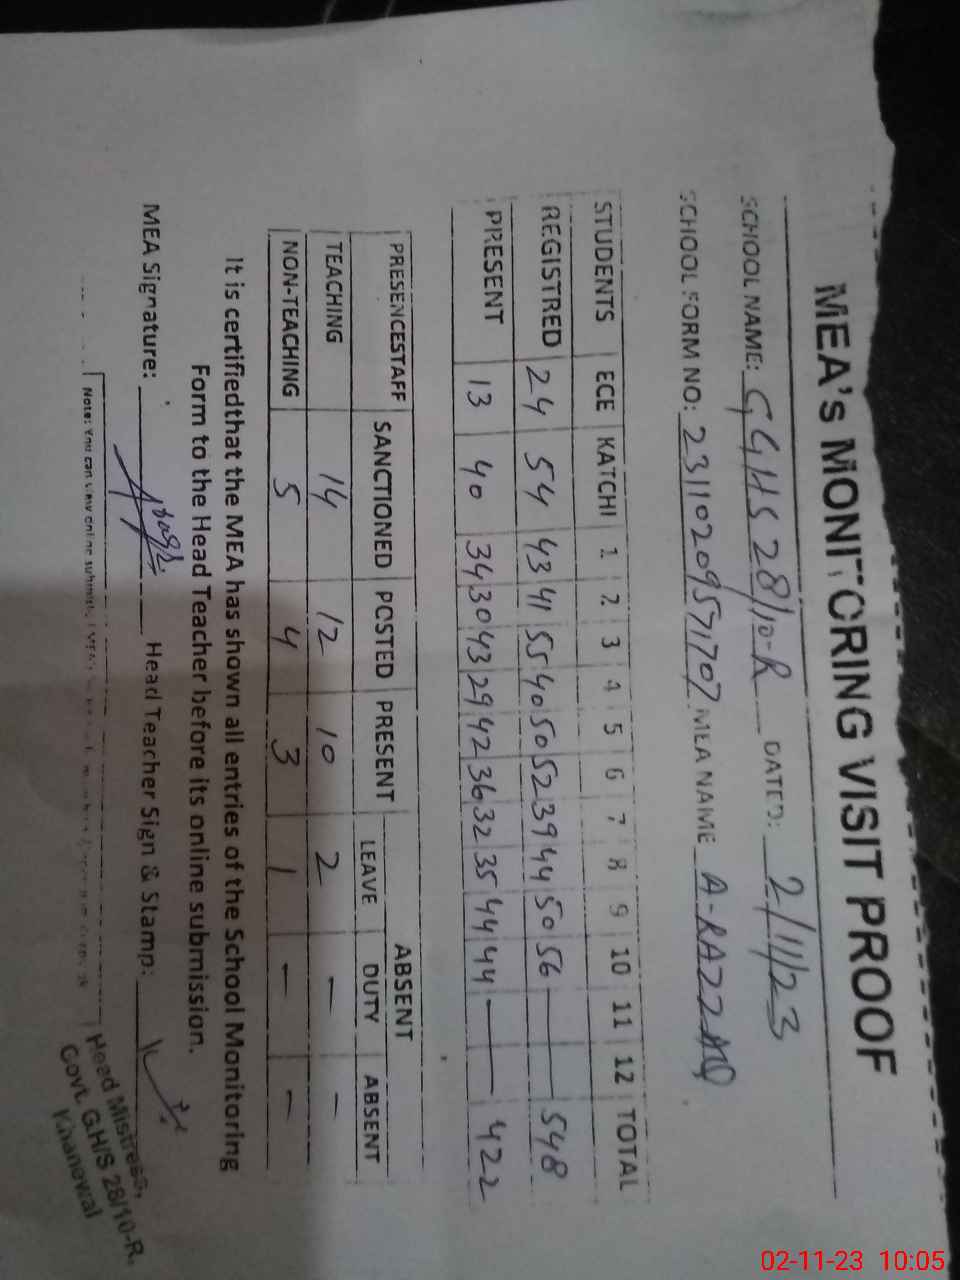 MEA's MONITORING VISIT PROOF
SCHOOL NAME: GGHS 28/10-R DATED: 2/11/23
SCHOOL FORM NO: 23110209571707 MEA NAME A-RAZZAQ
STUDENTS ECE KATCHI 1 2 3 4 5 6 7 8 9 10 11 12 TOTAL
REGISTRED 24 54 43 41 55 40 50 52 39 44 50 56 — 548
PRESENT 13 40 34 30 43 29 42 36 32 35 44 44 — 422
PRESENCESTAFF SANCTIONED POSTED PRESENT ABSENT
LEAVE DUTY ABSENT
TEACHING 14 12 10 2 — —
NON-TEACHING 5 4 3 1 — —
It is certifiedthat the MEA has shown all entries of the School Monitoring
Form to the Head Teacher before its online submission.
MEA Signature: Head Teacher Sign & Stamp:
Head Mistress,
Govt. G.H/S 28/10-R.
Khanewal
Note: You can view online
02-11-23 10:05